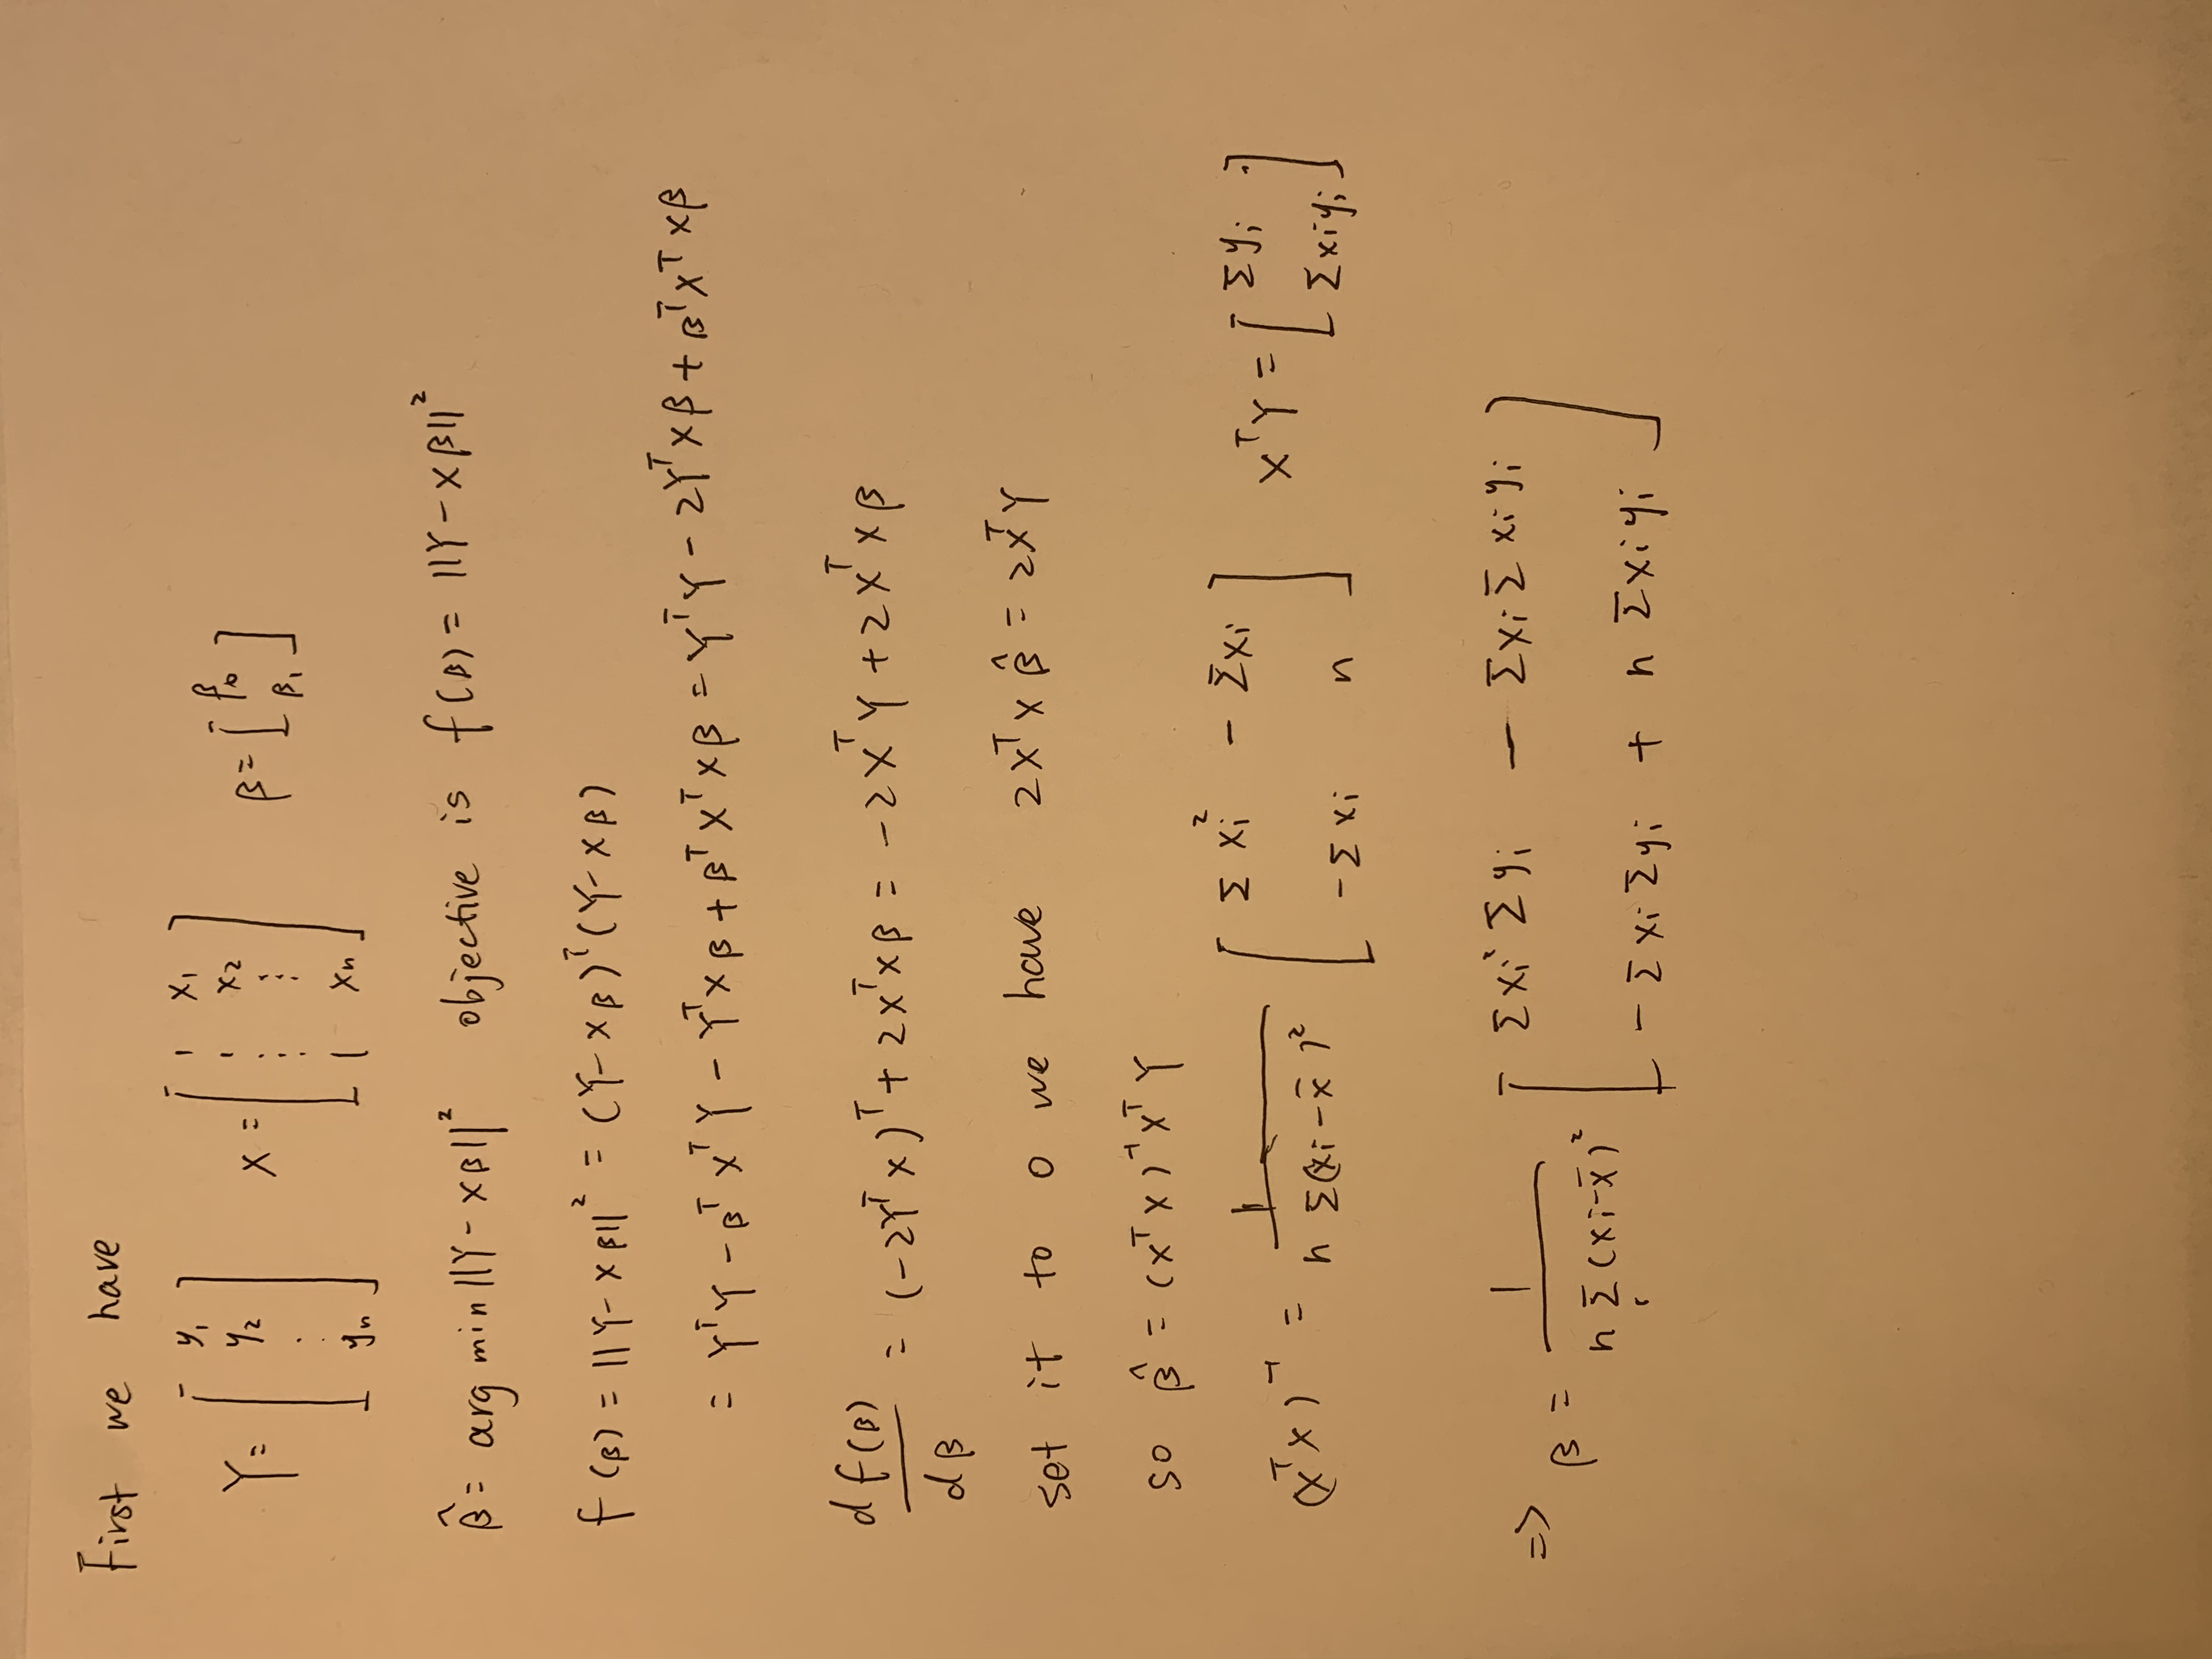 First we have
Y = [ y₁ y₂ . . yₙ ] X = [ 1 x₁ 1 x₂ ⋮ ⋮ 1 xₙ ] β = [ β₀ β₁ ]
β̂ = arg min ||Y - Xβ||² objective is f(β) = ||Y - Xβ||²
f(β) = ||Y - Xβ||² = (Y - Xβ)ᵀ(Y - Xβ)
= YᵀY - βᵀXᵀY - YᵀXβ + βᵀXᵀXβ = YᵀY - 2YᵀXβ + βᵀXᵀXβ
df(β)/dβ = (-2YᵀX)ᵀ + 2XᵀXβ = -2XᵀY + 2XᵀXβ
set it to 0 we have 2XᵀXβ̂ = 2XᵀY
so β̂ = (XᵀX)⁻¹XᵀY
(XᵀX)⁻¹ = 1/(n Σ(xᵢ - x̄)²) [ Σxᵢ² - Σxᵢ -Σxᵢ n ] XᵀY = [ Σyᵢ Σxᵢyᵢ ]
=> β = 1/(n Σᵢ(xᵢ - x̄)²) [ Σxᵢ² Σyᵢ - Σxᵢ Σxᵢyᵢ -Σxᵢ Σyᵢ + n Σxᵢyᵢ ]